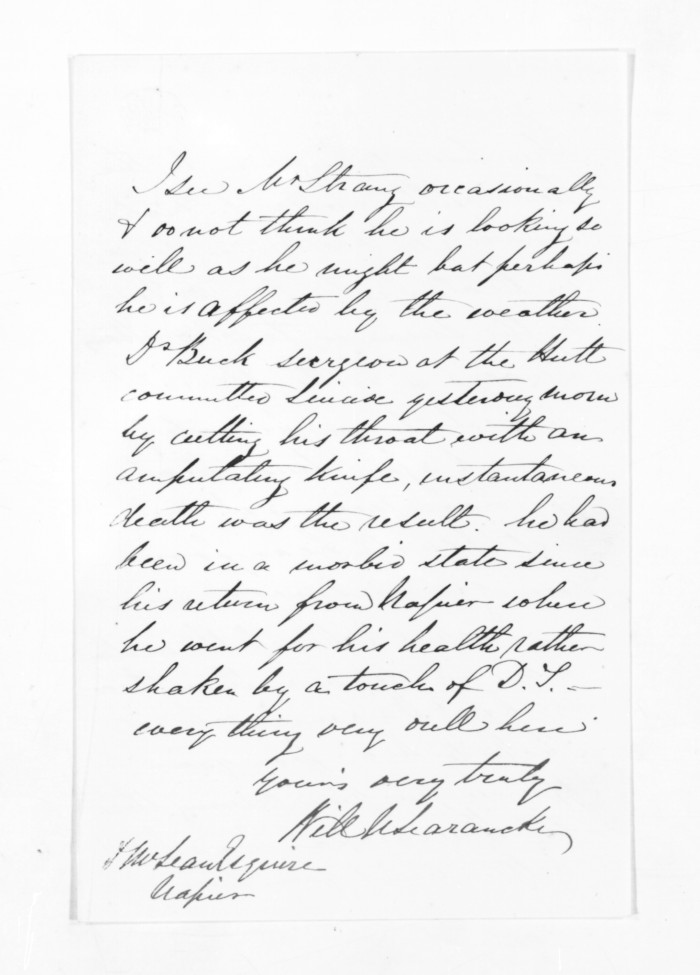 I see Mr Strang occasionally
& do not think he is looking so
well as he might but perhaps
he is affected by the weather
Dr Buck surgeon at the Hutt
committed suicide yesterday morn
by cutting his throat with an
amputating knife, instantaneous
death was the result. he had
been in a morbid state since
his return from Napier where
he went for his health, rather
shaken by a touch of D. T. —
everything very dull here
Yours very truly
Will N Searancke
D McLean Esquire
Napier